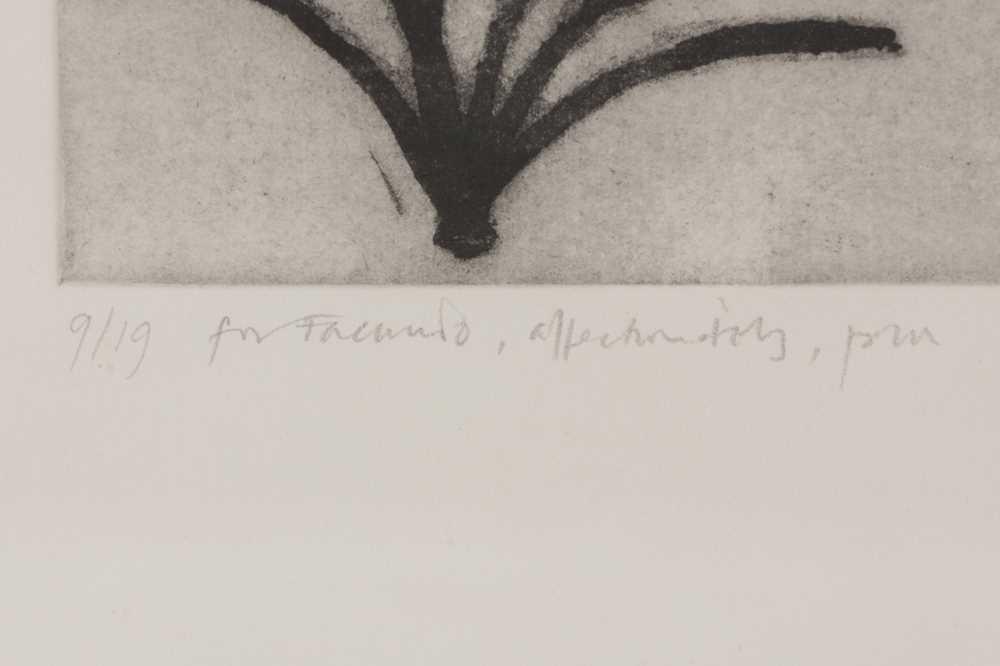 9/19 for Facundo, affectionately, from